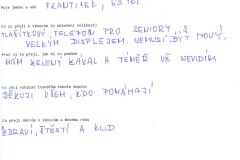 Moje jméno a věk FRANTIŠEK, 63 let
Co si přeji k Vánocům (u oblečení velikost)
TLAČÍTKOVÝ, TELEFON PRO SENIORY, S
VELKÝM DISPLEJEM, NEMUSÍ BÝT NOVÝ,
Proč si to přeji, jak mi to pomůže
MÁM ZELENÝ ZÁKAL A TEMĚŘ UŽ NEVIDÍM
Co chci vzkázat čtenářům tohoto dopisu
DĚKUJI VŠEM, KDO POMÁHAJÍ
Co přeji dárcům k Vánocům a Novému roku
ZDRAVÍ, ŠTĚSTÍ A KLID